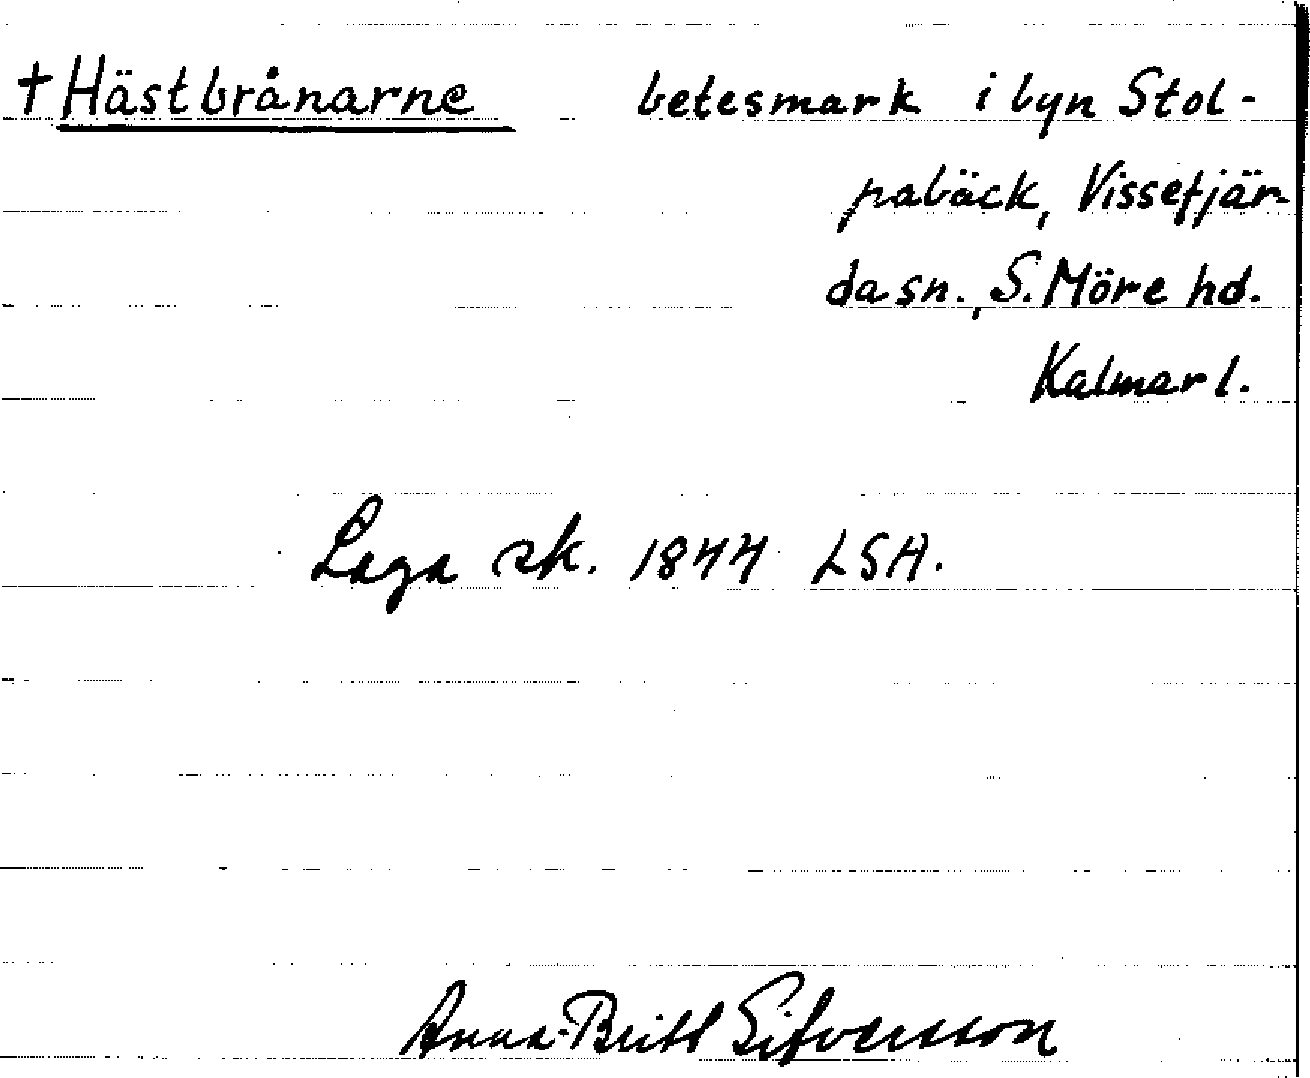 †Hästbrånarne betesmark i byn Stol-
pabäck, Vissefjär-
da sn., S. Möre hd.
Kalmar l.
Laga sk. 1844 LSA.
Anna-Britt Sifversson